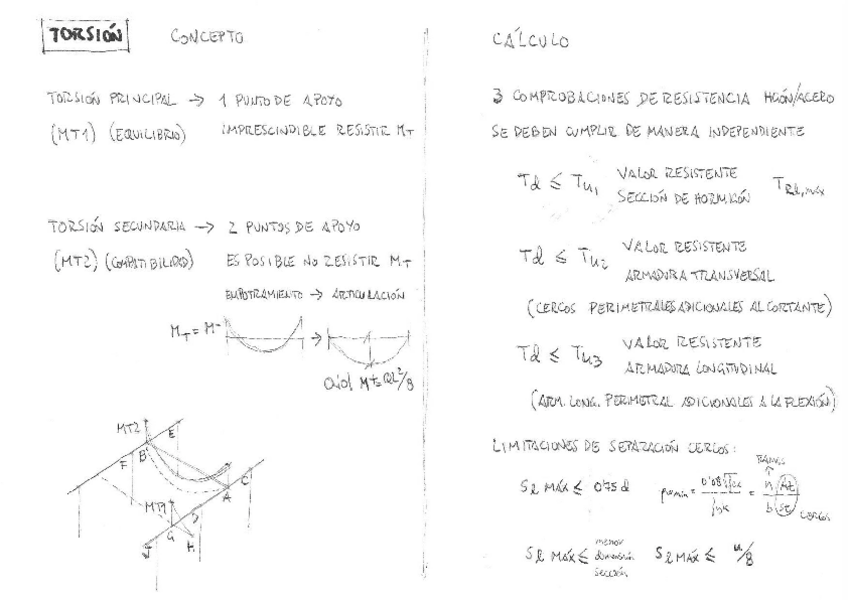 TORSIÓN CONCEPTO
TORSIÓN PRINCIPAL → 1 PUNTO DE APOYO
(MT1) (EQUILIBRIO) IMPRESCINDIBLE RESISTIR MT
TORSIÓN SECUNDARIA → 2 PUNTOS DE APOYO
(MT2) (COMPATIBILIDAD) ES POSIBLE NO RESISTIR MT
EMPOTRAMIENTO → ARTICULACIÓN
MT = M-
→
M+= QL²/8
MT2
E
F
B
C
A
MT1
J
G
H
CÁLCULO
3 COMPROBACIONES DE RESISTENCIA HGÓN/ACERO
SE DEBEN CUMPLIR DE MANERA INDEPENDIENTE
Td ≤ Tu1 VALOR RESISTENTE
SECCIÓN DE HORMIGÓN TRd,máx
Td ≤ Tu2 VALOR RESISTENTE
ARMADURA TRANSVERSAL
(CERCOS PERIMETRALES ADICIONALES AL CORTANTE)
Td ≤ Tu3 VALOR RESISTENTE
ARMADURA LONGITUDINAL
(ARM. LONG. PERIMETRAL ADICIONALES A LA FLEXIÓN)
LIMITACIONES DE SEPARACIÓN CERCOS:
Sl MÁX ≤ 0'75 d
RAMAS
n
b
CERCOS
Sl MÁX ≤ menor dimensión sección
Sl MÁX ≤ u/8